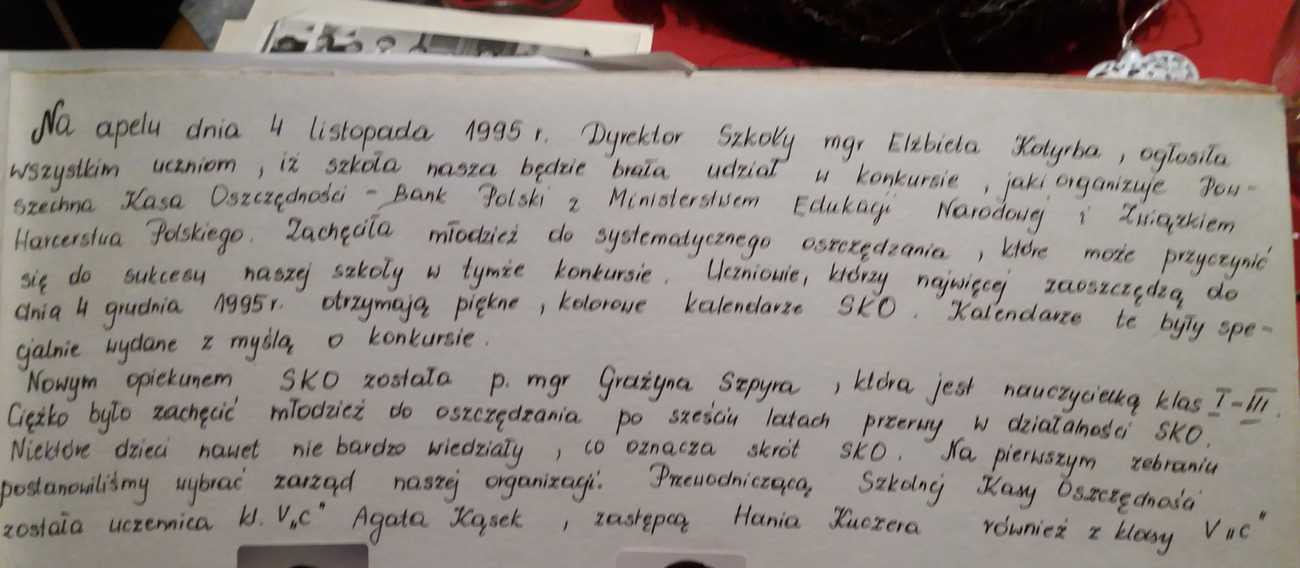 Na apelu dnia 4 listopada 1995 r. Dyrektor Szkoły mgr Elżbieta Kotyrba, ogłosiła
wszystkim uczniom, iż szkoła nasza będzie brała udział w konkursie, jaki organizuje Pow-
szechna Kasa Oszczędności - Bank Polski z Ministerstwem Edukacji Narodowej i Związkiem
Harcerstwa Polskiego. Zachęciła młodzież do systematycznego oszczędzania, które może przyczynić
się do sukcesu naszej szkoły w tymże konkursie. Uczniowie, którzy najwięcej zaoszczędzą do
dnia 4 grudnia 1995 r. otrzymają piękne, kolorowe kalendarze SKO. Kalendarze te były spe-
cjalnie wydane z myślą o konkursie.
Nowym opiekunem SKO została p. mgr Grażyna Szpyra, która jest nauczycielką klas I-III.
Ciężko było zachęcić młodzież do oszczędzania po sześciu latach przerwy w działalności SKO.
Niektóre dzieci nawet nie bardzo wiedziały, co oznacza skrót SKO. Na pierwszym zebraniu
postanowiliśmy wybrać zarząd naszej organizacji. Przewodniczącą Szkolnej Kasy Oszczędności
została uczennica kl. V„c" Agata Kąsek, zastępcą Hania Kuczera również z klasy V„c"